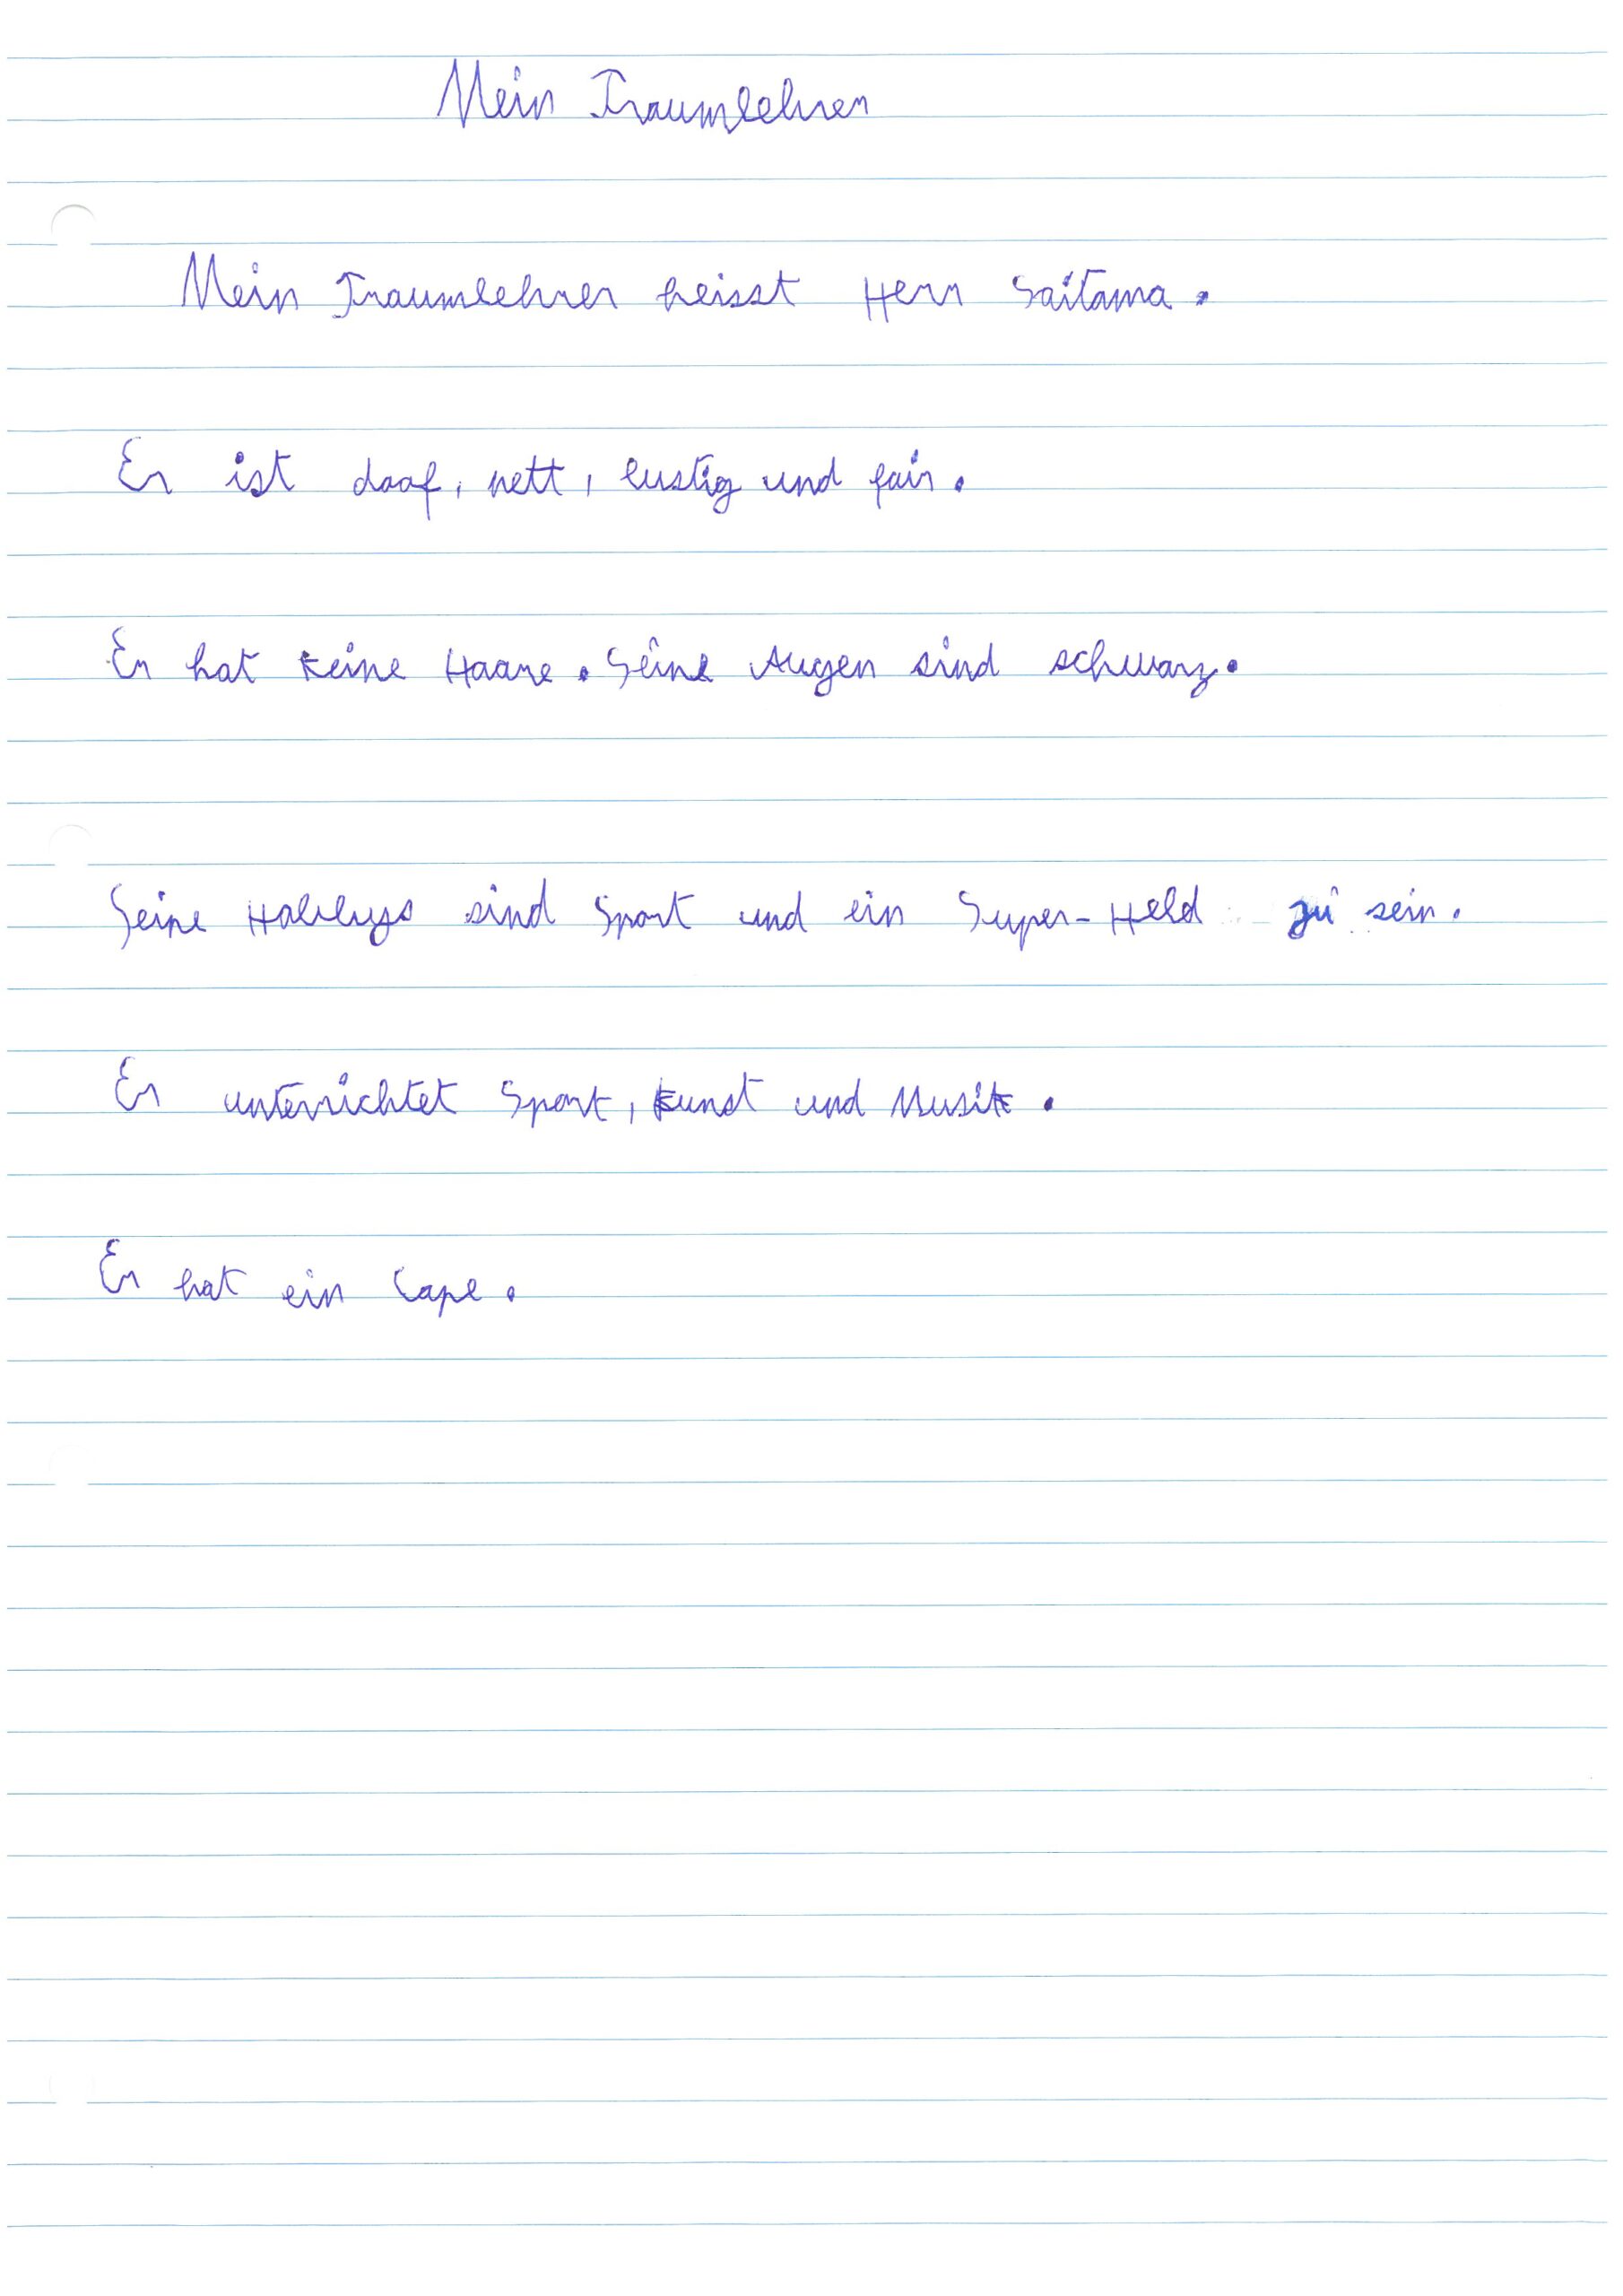 Mein Traumlehrer
Mein Traumlehrer heisst Herr Saitama.
Er ist doof, nett, lustig und fair.
Er hat keine Haare. Seine Augen sind schwarz.
Seine Hobbys sind Sport und ein Super-Held zu sein.
Er unterrichtet Sport, Kunst und Musik.
Er hat ein Cape.